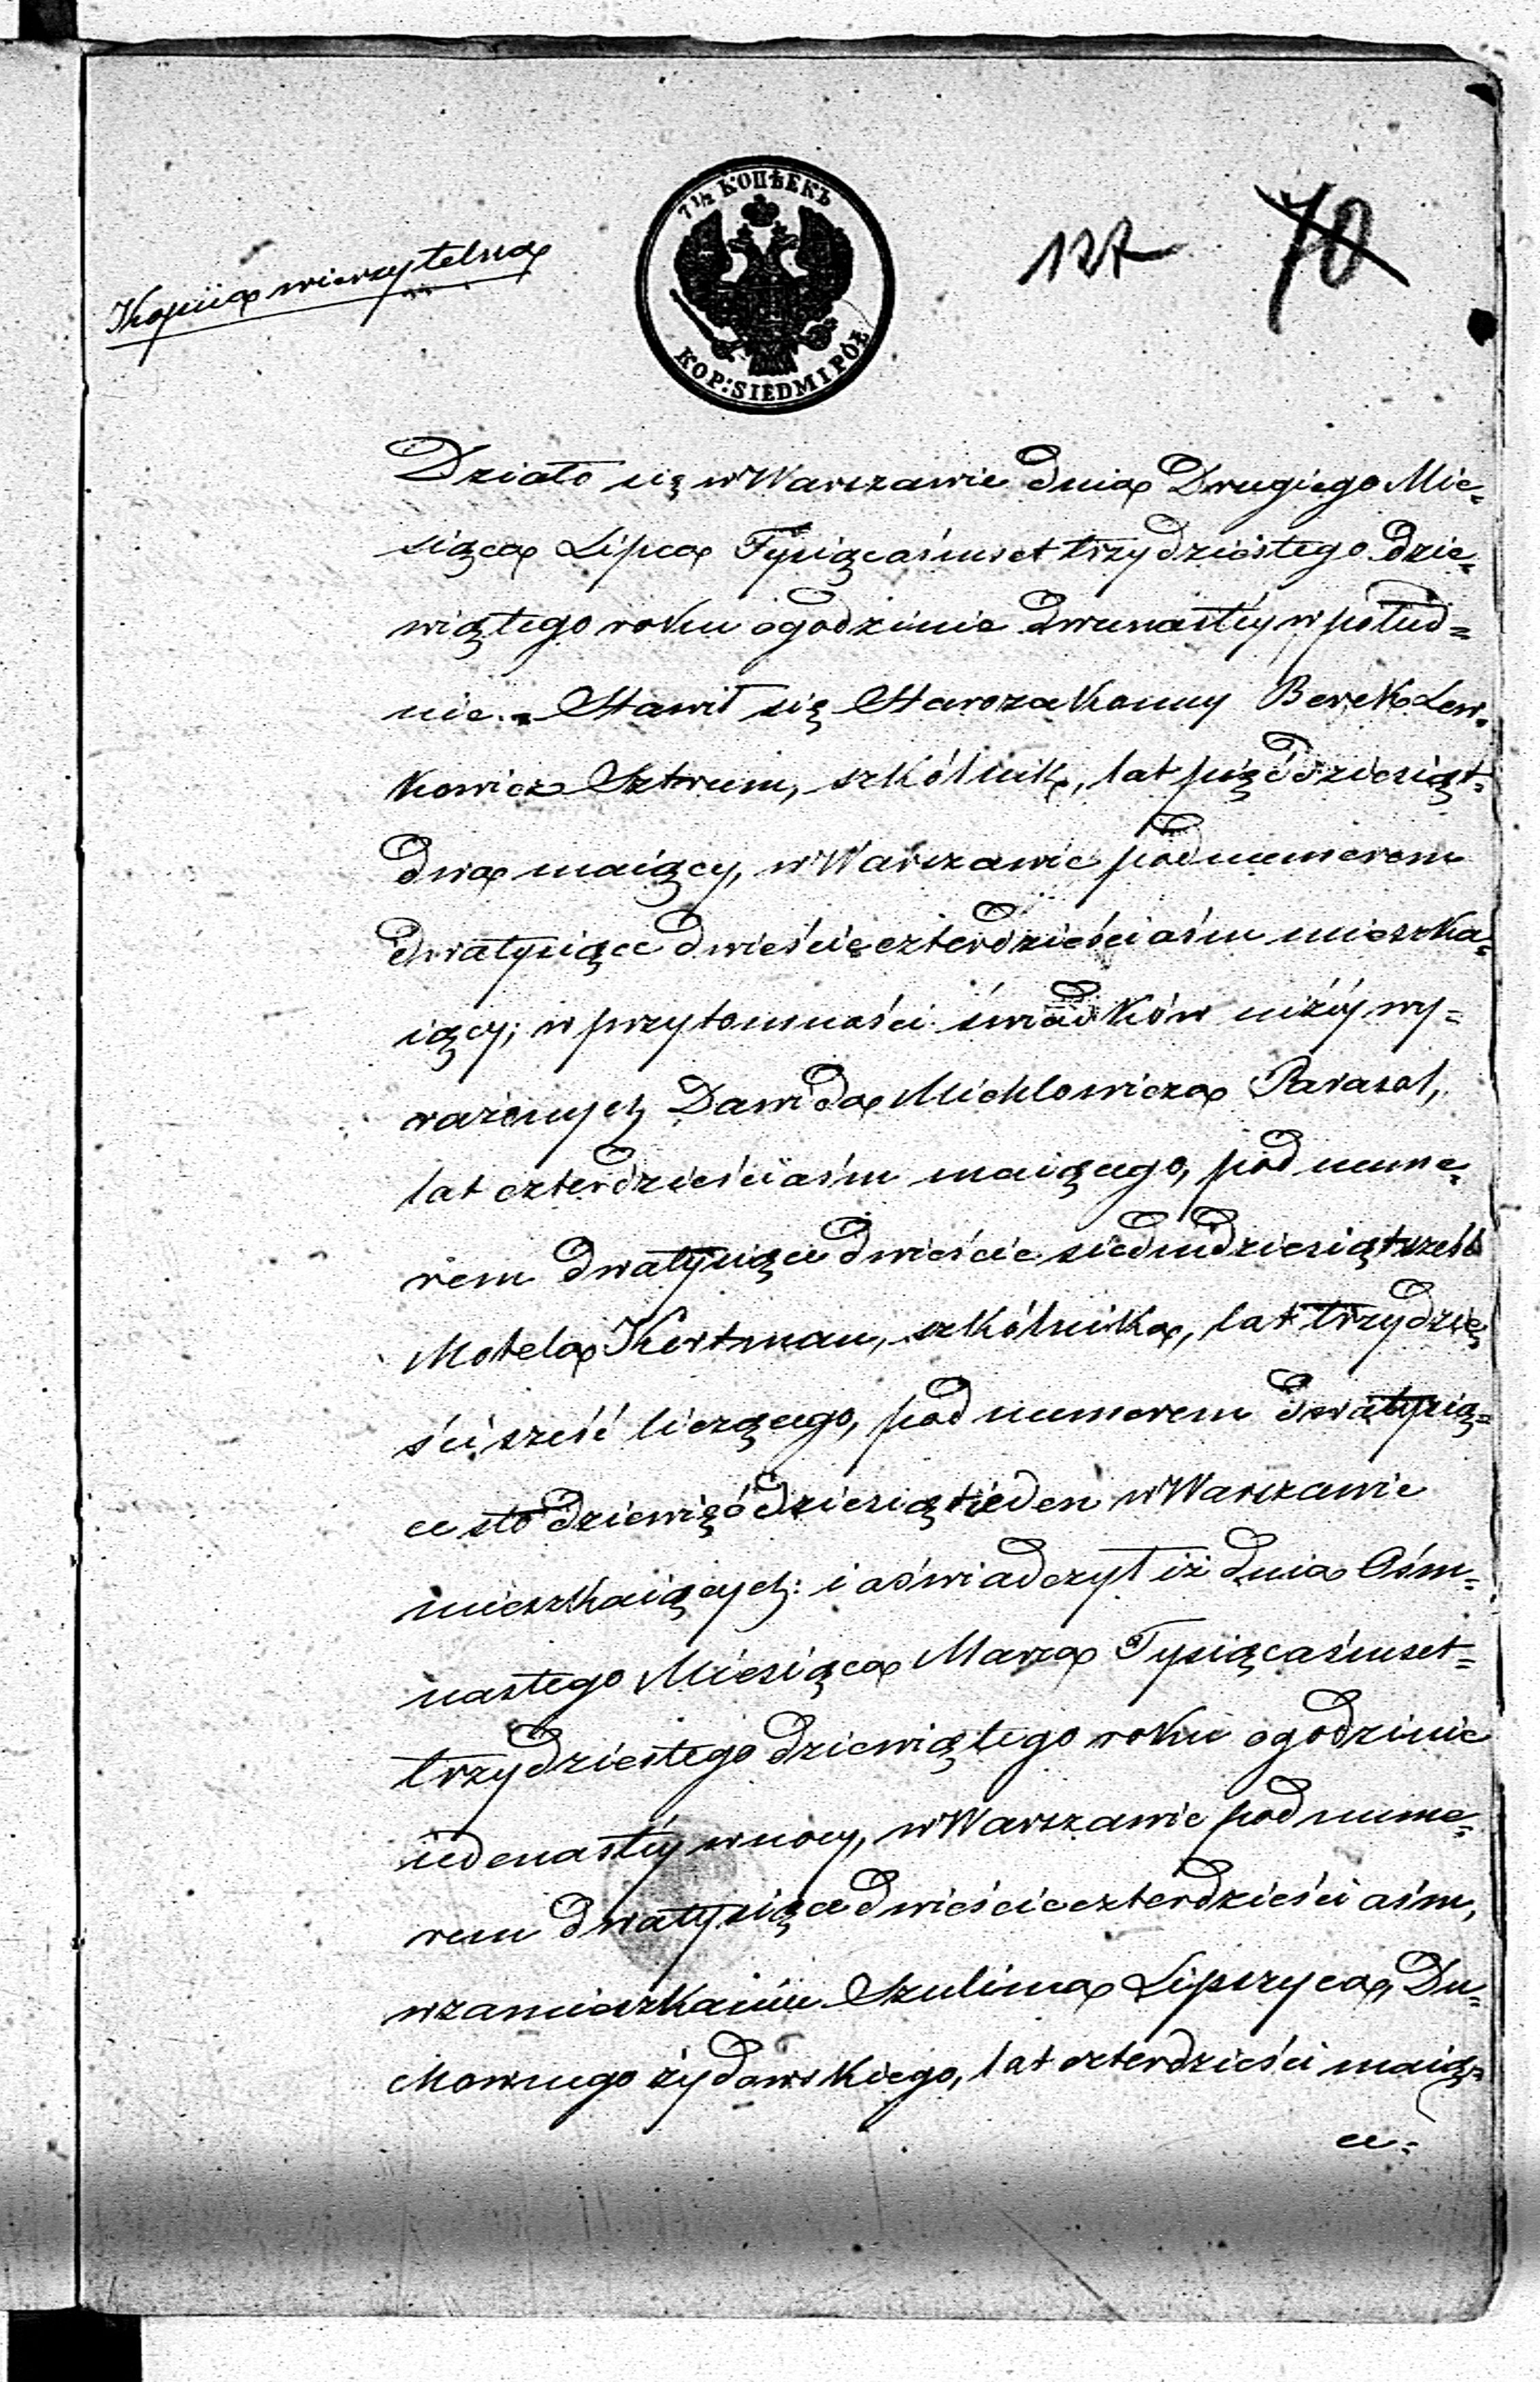 Kopiia wierzytelna
7½ КОПѢЕКЪ
KOP: SIEDM I PÓŁ
127 70
Działo się w Warszawie dnia Drugiego Mie-
siąca Lipca Tysiącaśmset trzydziestego dzie-
wiątego roku o godzinie dwunastéy w połud=
nie. Stawił się Starozakonny Berek Lew-
kowicz Sztrum, szkólnik, lat pięćdziesiąt-
dwa maiący, w Warszawie pod numerem
dwatysiące dwieście czterdzieści ośm mieszka-
iący; w przytomności świadków niżéy wy=
rażonych Dawida Michlowicza Parasol,
lat czterdzieści ośm maiącego, pod nume-
rem dwatysiące dwieście siedmdziesiąt sześć
Motela Kertzman, szkólnika, lat trzydzie-
ści sześć liczącego, pod numerem dwatysią=
ce sto dziewięćdziesiąt ieden w Warszawie
mieszkaiących: i oświadczył iż dnia Ośm-
nastego Miesiąca Marca Tysiącaśmset=
trzydziestego dziewiątego roku o godzinie
iedenastéy w nocy, w Warszawie pod nume-
rem dwatysiące dwieście czterdzieści ośm,
w zamieszkaniu Szulima Lipszyca, Du-
chownego żydowskiego, lat czterdzieści maią-
ce-